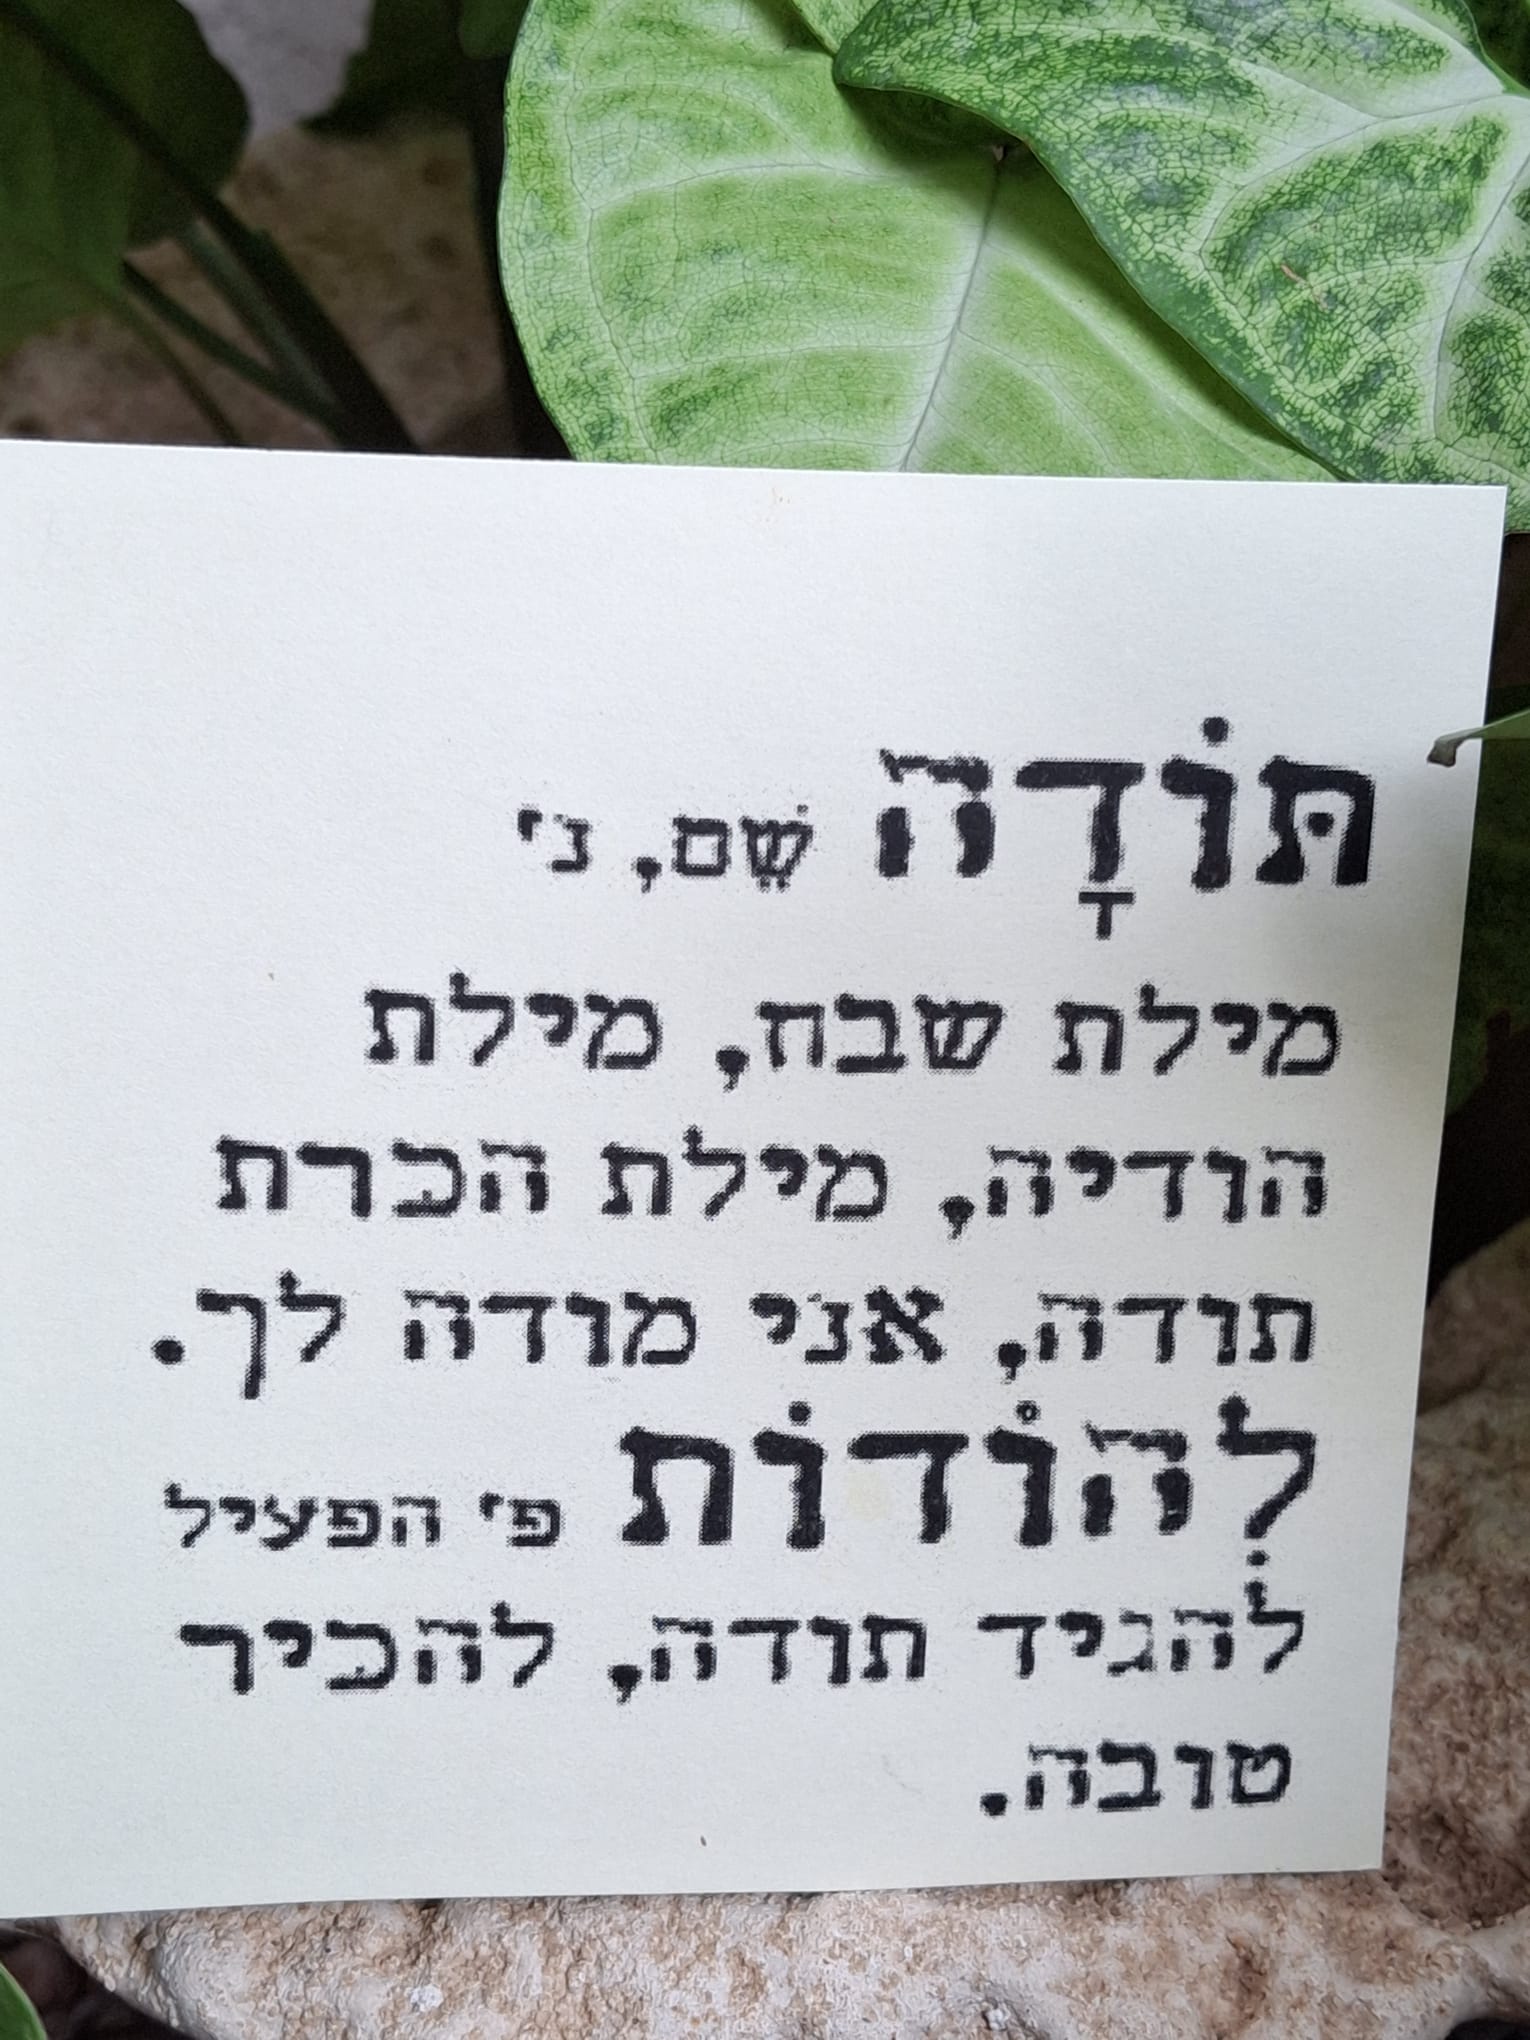 תּוֹדָה שֵׁם, נ'
מילת שבח, מילת
הודיה, מילת הכרת
תודה, אני מודה לך.
לְהוֹדוֹת פ' הפעיל
להגיד תודה, להכיר
טובה.